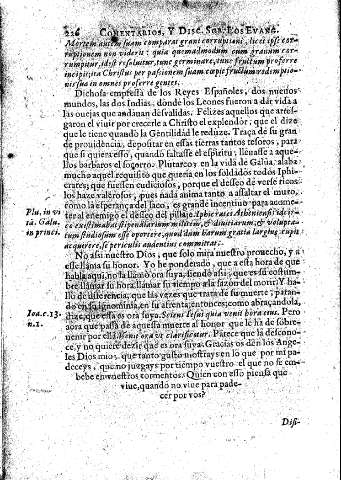 226 COMENTARIOS, Y DISC. SOB. LOS EVANG.
Mortem autem suam comparat grani corruptioni, licet ipse cor-
ruptionem non viderit: quia quemadmodum cum granum cor-
rumpitur, id est resolvitur, tunc germinare, tunc fructum proferre
incipit; ita Christus per passionem suam carpit fructum redemptio-
nis suæ in omnes proferre gentes.
Dichosa empressa de los Reyes Españoles, dos nuevos
mundos, las dos Indias, donde los Leones fueron a dar vida a
las ovejas que andauan desvalidas. Felizes aquellos que
garon el viuir por crecerle a Christo el explendor; que el dize
que le tiene quando la Gentilidad le reduze. Traça de su gran
de prouidencia, depositar en essas tierras tantos tesoros, para
que si quiera esso, quando faltasse el espiritu, lleuasse a aque-
llos barbaros el socorro. Plutarco en la vida de Galua, alaba
mucho aquel requisito que queria en los soldados todos Iphi-
crates; que fuessen cudiciosos, porque el desseo de verse ricos
los haze valerosos, pues nada anima tanto a assaltar el muro,
como la esperança del saco; es grande incentiuo para acome-
ter al enemigo el desseo del pillaje. Iphicrates Atheniensis idcir-
co existimabat stipendiarium militem, & diuitiarum, & volupta-
tum studiosum esse oportere, quod dum harum gratia largius cupit
acquirere, se periculis audentius committat.
Plu. in vi
ta. Galu.
in princi.
No assi nuestro Dios, que solo mira nuestro prouecho, y a
esse llama su honor. Yo he ponderado, que a esta hora de que
habla aqui, no la llamò ora suya, siendo assi, que es su costum-
bre llamar su hora llamar su tiempo a la sazon del morir. Y ha-
llo de diferencia, que las vezes que trata de su muerte, patan-
do en su ignominia, en su afrenta, entonces, como abraçandola,
dize, que essa es ora suya. Sciens Iesus quia venit hora eius. Pero
aora que passa de aquessa muerte al honor que le hà de sobre-
uenir por ella. Venit ora vt clarificetur. Parece que la descono-
ce, y no quiere dezir que es ora suya. Gracias os den los Ange-
les Dios mio, que tanto gusto mostrays en lo que por mi pa-
deceys, que no juzgays por tiempo vuestro el que no se em-
bebe en vuestros tormentos. Quien con esso piensa que
viue, quando no viue para pade-
cer por vos?
Ioa. c. 13.
n. 1.
Dis-